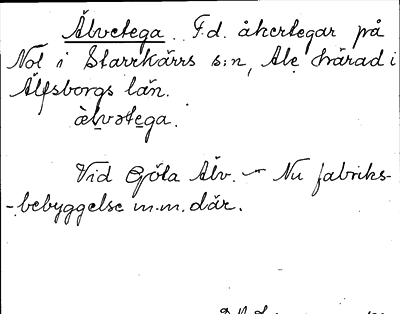 Älvetega. F.d. åkertegar på
Nol i Starrkärrs s:n, Ale härad i
Älfsborgs län.
 älvətega.
Vid Göta Älv. – Nu fabriks-
-bebyggelse m.m. där.